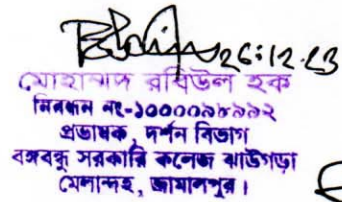 26.12.23
মোহাম্মদ রবিউল হক
নিবন্ধন নং-১০০০০৯৮৯৯২
প্রভাষক, দর্শন বিভাগ
বঙ্গবন্ধু সরকারি কলেজ ঝাউগড়া
মেলান্দহ, জামালপুর।